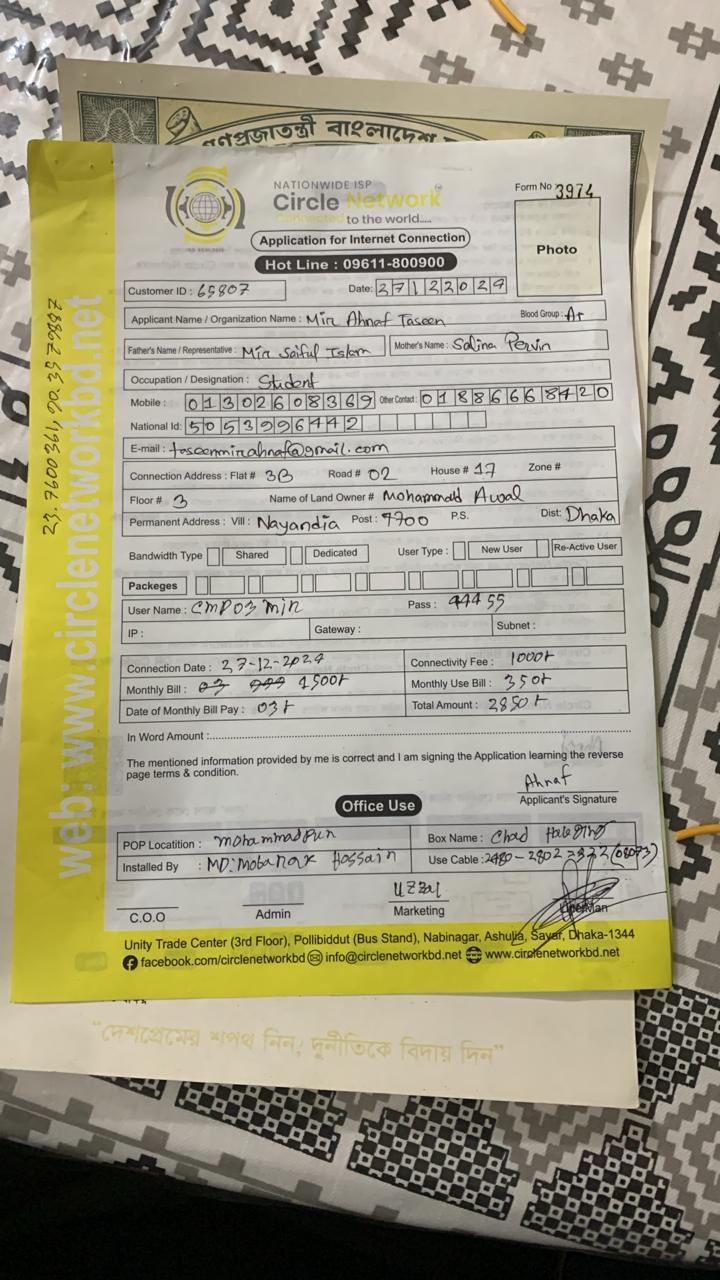 গণপ্রজাতন্ত্রী বাংলাদেশ
NATIONWIDE ISP
Circle Network
Connected to the world.....
Form No 3974
Application for Internet Connection
Hot Line : 09611-800900
Photo
Customer ID : 65807 Date: 27122024
Applicant Name / Organization Name : Mir Ahnaf Taseen Blood Group : A+
Father's Name / Representative : Mir Saiful Islam Mother's Name : Salina Pervin
Occupation / Designation : Student
Mobile : 01302608369 Other Contact : 01886668420
National Id: 5053996442
E-mail : taseenmirahnaf@gmail.com
Connection Address : Flat # 3B Road # 02 House # 17 Zone #
Floor # 3 Name of Land Owner # Mohammad Awal
Permanent Address : Vill : Nayandia Post : 9700 P.S. Dist: Dhaka
Bandwidth Type Shared Dedicated User Type : New User Re-Active User
Packeges
User Name : CMP03 mir Pass : 44455
IP : Gateway : Subnet :
Connection Date : 27-12-2024 Connectivity Fee : 1000/-
Monthly Bill : 1500/- Monthly Use Bill : 350/-
Date of Monthly Bill Pay : 03/- Total Amount : 2850/-
In Word Amount :
The mentioned information provided by me is correct and I am signing the Application learning the reverse
page terms & condition.
Ahnaf
Applicant's Signature
Office Use
POP Locatition : mohammadpur Box Name : Chad
Installed By : MD: Mobarak Hossain Use Cable : 2480-2802=322 (08073)
Uzzal
C.O.O Admin Marketing LineMan
Unity Trade Center (3rd Floor), Pollibiddut (Bus Stand), Nabinagar, Ashulia, Savar, Dhaka-1344
facebook.com/circlenetworkbd info@circlenetworkbd.net www.circlenetworkbd.net
web: www.circlenetworkbd.net
23.7600361, 90.3579887
"দেশপ্রেমের শপথ নিন, দুর্নীতিকে বিদায় দিন"